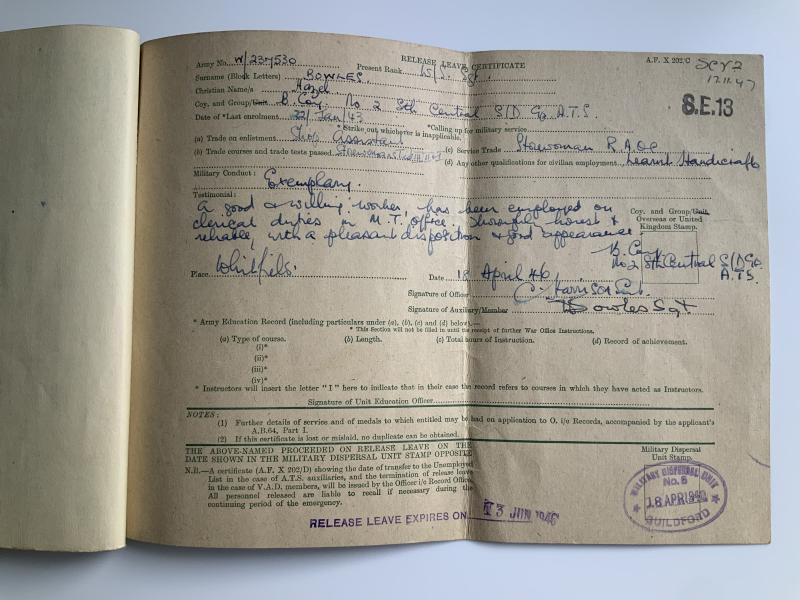 RELEASE LEAVE CERTIFICATE
A.F. X 202/C
Army No. W/234530 Present Rank Sgt.
17.11.47
Surname (Block Letters) BOWLES
S.E.13
Christian Name/s Hazel
Coy. and Group/Unit B. Coy. No 2 Sth Central S/D Gp. A.T.S.
Date of *Last enrolment 22/Jan/43 *Calling up for military service
*Strike out whichever is inapplicable.
(a) Trade on enlistment Shop Assistant (c) Service Trade Storewoman R.A.O.C
(b) Trade courses and trade tests passed Storewoman (d) Any other qualifications for civilian employment Learnt Handicraft
Military Conduct: Exemplary.
Testimonial:
A good & willing worker, has been employed on
clerical duties in M.T. office. Thoroughly honest &
reliable, with a pleasant disposition & good appearance.
Coy. and Group/Unit
Overseas or United
Kingdom Stamp.
B. Coy
No 2 Sth Central S/D Gp.
A.T.S.
Place Date 18 April 46
Signature of Officer Harrison
Signature of Auxiliary/Member Bowles Sgt
* Army Education Record (including particulars under (a), (b), (c) and (d) below).—
* This Section will not be filled in until the receipt of further War Office Instructions.
(a) Type of course. (b) Length. (c) Total hours of Instruction. (d) Record of achievement.
(i)*
(ii)*
(iii)*
(iv)*
* Instructors will insert the letter "I" here to indicate that in their case the record refers to courses in which they have acted as Instructors.
Signature of Unit Education Officer
NOTES:
(1) Further details of service and of medals to which entitled may be had on application to O. i/c Records, accompanied by the applicant's
A.B.64, Part I.
(2) If this certificate is lost or mislaid, no duplicate can be obtained.
THE ABOVE-NAMED PROCEEDED ON RELEASE LEAVE ON THE
DATE SHOWN IN THE MILITARY DISPERSAL UNIT STAMP OPPOSITE
Military Dispersal
Unit Stamp.
N.B.—A certificate (A.F. X 202/D) showing the date of transfer to the Unemployed
List in the case of A.T.S. auxiliaries, and the termination of release leave
in the case of V.A.D. members, will be issued by the Officer i/c Record Office.
All personnel released are liable to recall if necessary during the
continuing period of the emergency.
MILITARY DISPERSAL UNIT
No. 6
18 APR 1946
GUILDFORD
RELEASE LEAVE EXPIRES ON 13 JUN 1946